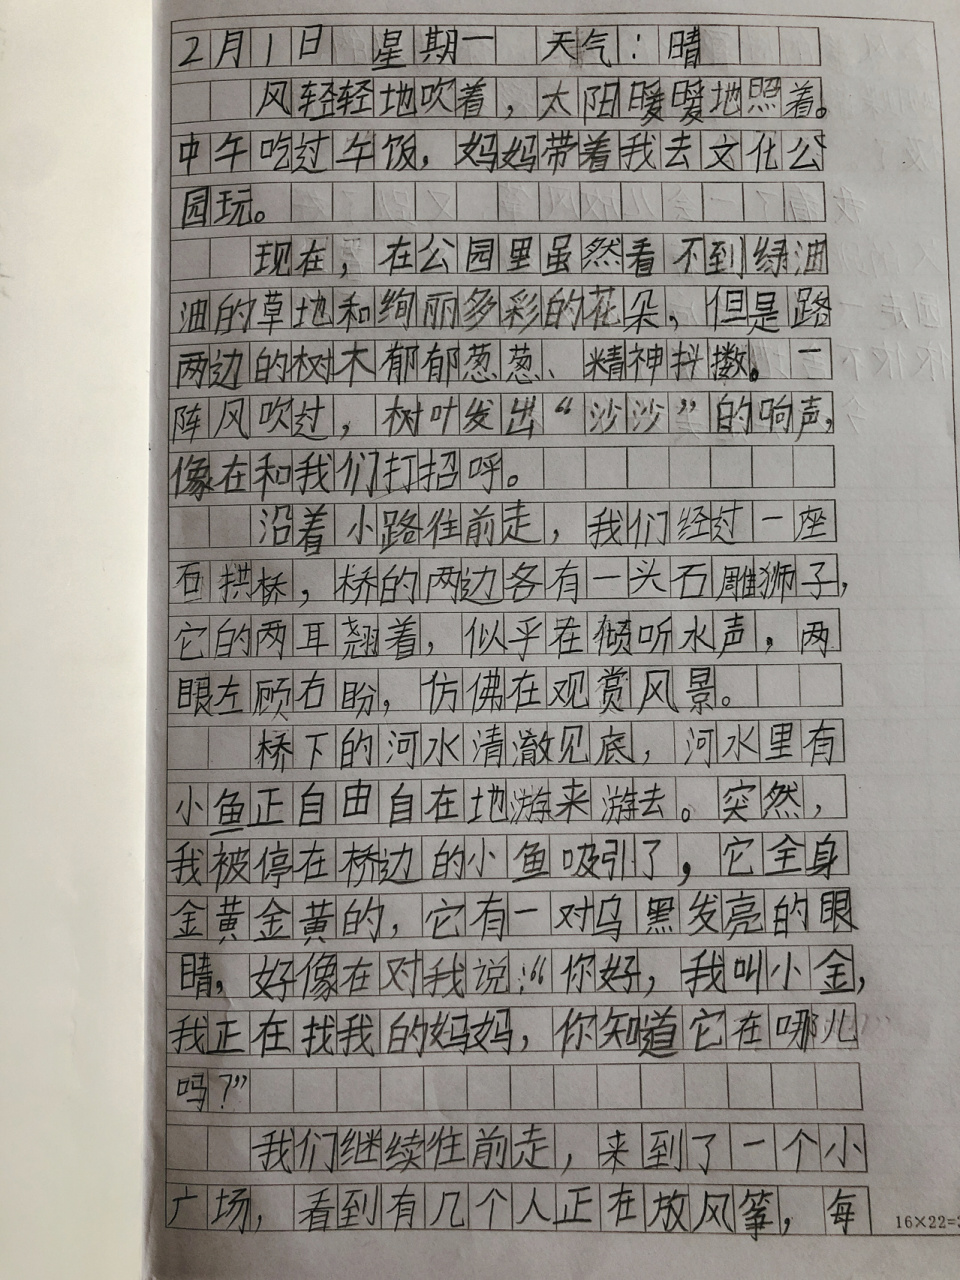 2月1日 星期一 天气:晴
风轻轻地吹着,太阳暖暖地照着。
中午吃过午饭,妈妈带着我去文化公
园玩。
现在,在公园里虽然看不到绿油
油的草地和绚丽多彩的花朵,但是路
两边的树木郁郁葱葱、精神抖擞。一
阵风吹过,树叶发出“沙沙”的响声,
像在和我们打招呼。
沿着小路往前走,我们经过一座
石拱桥,桥的两边各有一头石雕狮子,
它的两耳翘着,似乎在倾听水声,两
眼左顾右盼,仿佛在观赏风景。
桥下的河水清澈见底,河水里有
小鱼正自由自在地游来游去。突然,
我被停在桥边的小鱼吸引了,它全身
金黄金黄的,它有一对乌黑发亮的眼
睛,好像在对我说:“你好,我叫小金,
我正在找我的妈妈,你知道它在哪儿
吗?”
我们继续往前走,来到了一个小
广场,看到有几个人正在放风筝,每
16×22=